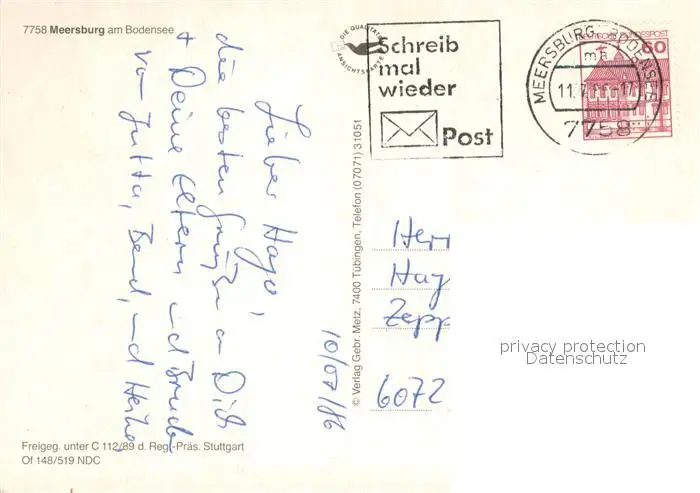 7758 Meersburg am Bodensee
DIE QUALITÄTS
ANSICHTSKARTE
Schreib
mal
wieder
Post
MEERSBURG, BODENSEE
7758
DEUTSCHE BUNDESPOST
60
Lieber Hajo,
die besten Grüße an Dich
+ Deine Eltern und Bruder
von Jutta, Bernd, und Heike
10/07/86
© Verlag Gebr. Metz, 7400 Tübingen, Telefon (07071) 31051
Herr
Haj
Zepp
6072
privacy protection
Datenschutz
Freigeg. unter C 112/89 d. Reg.-Präs. Stuttgart
Of 148/519 NDC